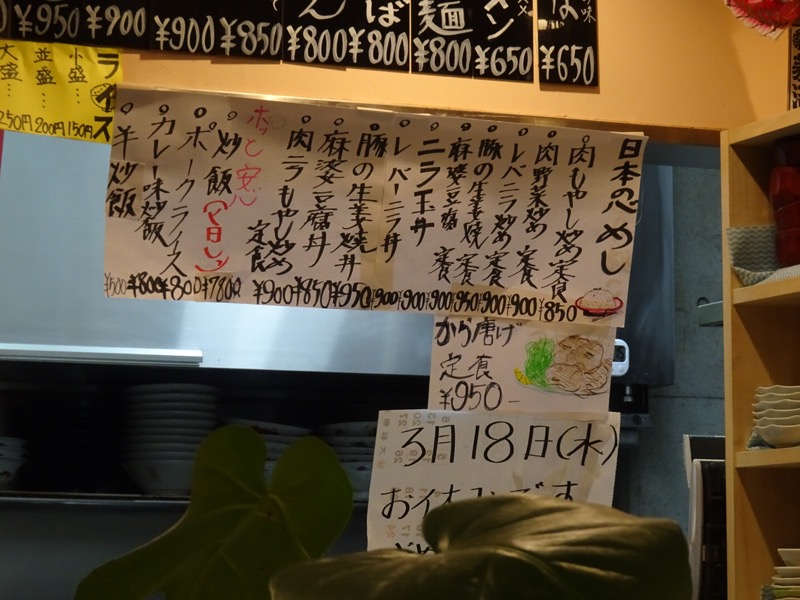 ¥950
¥900
¥900
¥850
ん
¥800
ば
¥800
麺
¥800
メン
¥650
ば
¥650
ライス
小盛… 150円
並盛… 200円
大盛… 250円
日本の心めし
肉もやし炒め定食 ¥850
肉野菜炒め定食 ¥900
レバニラ炒め定食 ¥900
豚の生姜焼定食 ¥950
麻婆豆腐定食 ¥900
ニラ玉丼 ¥900
レバーニラ丼 ¥900
豚の生姜焼丼 ¥950
麻婆豆腐丼 ¥850
肉ニラもやし炒め定食 ¥900
ホッと安心
炒飯 ¥780
ポークライス ¥800
カレー味炒飯 ¥800
半炒飯 ¥500
から唐げ
定食
¥950-
3月18日(水)